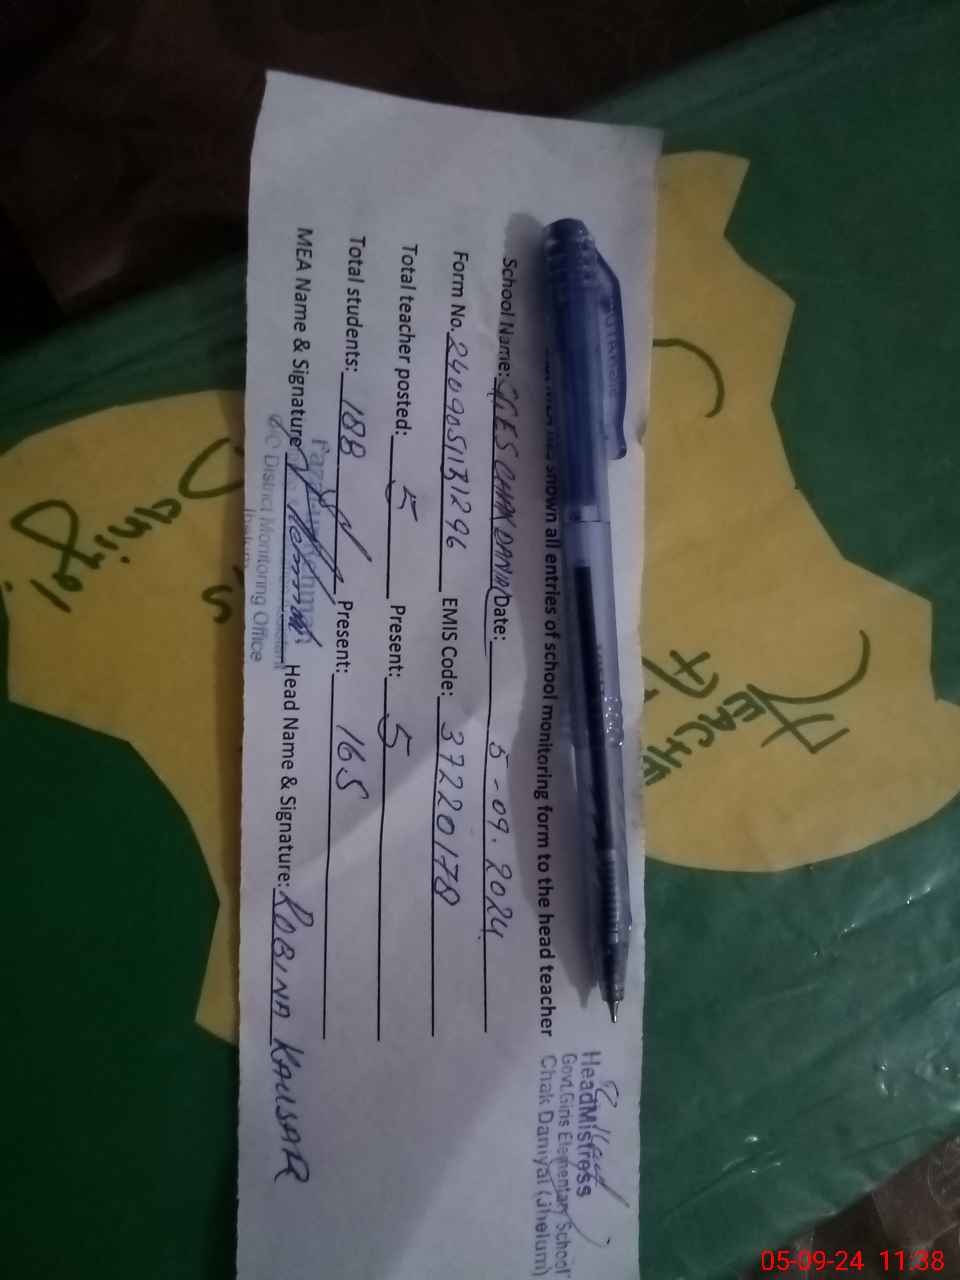 shown all entries of school monitoring form to the head teacher
School Name: GGES CHAK DANIAL Date: 5-09.2024
Form No. EMIS Code: 37220178
Total teacher posted: 5 Present: 5
Total students: 188 Present: 165
MEA Name & Signature Head Name & Signature: ROBINA KAUSAR
District Monitoring Office
Jhelum
HeadMistress
Govt.Girls Elementary School
Chak Daniyal (Jhelum)
TEACHE
Daniyal
05-09-24 11:38